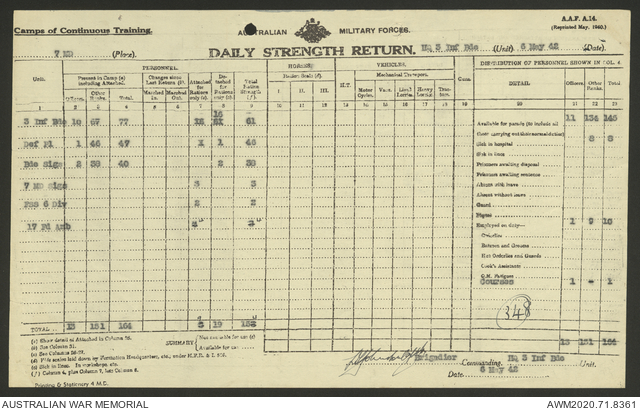 Camps of Continuous Training.
AUSTRALIAN MILITARY FORCES.
A.A.F. A.14.
(Reprinted May, 1940.)
7 MD (Place).
DAILY STRENGTH RETURN.
HQ 3 Inf Bde (Unit) 6 May 42 (Date).
PERSONNEL. HORSES VEHICLES. DISTRIBUTION OF PERSONNEL SHOWN IN COL. 4.
Unit. Present in Camp (a) including Attached. Changes since Last Return (b). Attached for Rations only (c) Detached for Rations only (e) Total Ration Strength (f) Ration Scale (d). H.T. Mechanical Transport. Guns. DETAIL Officers. Other Ranks. Total.
Officers. Other Ranks. Total. Marched In. Marched Out. I. II. III. Motor Cycles. Vans. Lorries. Heavy Lorries. Tractors.
1 2 3 4 5 6 7 8 9 10 11 12 13 14 15 16 17 18 19 20 21 22 23
3 Inf Bde 10 67 77 16 61
Available for parade (to include all 11 134 145
their carrying out their normal duties)
Def Pl 1 46 47 1 46
Sick in hospital 8 8
Sick in lines
Bde Sigs 2 38 40 2 38
Prisoners awaiting disposal
Prisoners awaiting sentence
7 MD Sigs 3 3
Absent with leave
Absent without leave
Pro 6 Div 2 2
Guard
Piquet
17 Fd Amb 2
Employed on duty— 1 9 10
Orderlies
Batmen and Grooms
Hot Orderlies and Guards
Cook's Assistants
Q.M. Fatigues
Courses 1 - 1
348
TOTAL 13 151 164 19
13 151 164
(a) Show detail of Attached in Column 20.
(b) See Column 21.
SUMMARY
Not available for use (e)
Brigadier Commanding HQ 3 Inf Bde Unit.
Date 6 May 42
Printing & Stationery 4 M.C.
AUSTRALIAN WAR MEMORIAL
AWM2020.71.8361